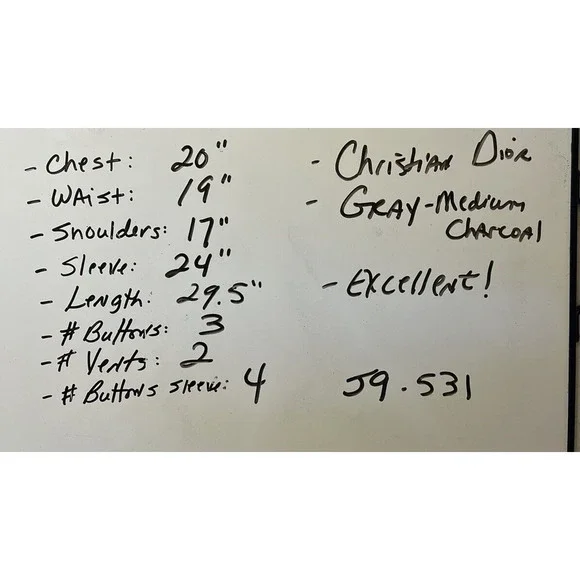 - Chest: 20"
- Waist: 19"
- Shoulders: 17"
- Sleeve: 24"
- Length: 29.5"
- # Buttons: 3
- # Vents: 2
- # Buttons sleeve: 4
- Christian Dior
- Gray - Medium
Charcoal
- Excellent!
J9.531